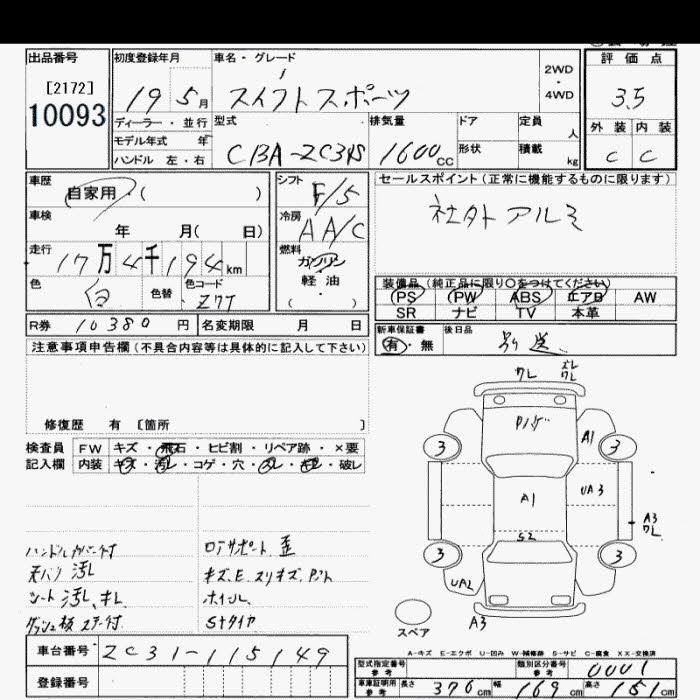 出品番号
[2172]
10093
初度登録年月
19 5月
車名・グレード
スイフトスポーツ
2WD
・
4WD
評価点
3.5
外装 内装
C C
ディーラー・並行
モデル年式 年
ハンドル 左・右
型式
CBA-ZC31S
排気量
1600cc
ドア
形状
定員
人
積載
kg
車歴
自家用・( )
車検
年 月( 日)
走行
17万4千194km
色
白
色替
色コード
Z7T
シフト
F/5
冷房
AA/C
燃料
ガソリン
・
軽油
( )
セールスポイント(正常に機能するものに限ります)
社外アルミ
装備品(純正品に限り○をつけてください)
PS PW ABS エアB AW
SR ナビ TV 本革
R券 10380円
名変期限 月 日
新車保証書
有・無
後日品
別送
注意事項申告欄(不具合内容等は具体的に記入して下さい)
修復歴 有 〔箇所 〕
検査員
記入欄
FW キズ・飛石・ヒビ割・リペア跡・×要
内装 キズ・汚レ・コゲ・穴・スレ・キレ・破レ
ハンドルカバー付
天バリ汚レ
シート汚レ、キレ
ダッシュ板ステー付
ロアサポート歪
キズ、E、スリキズ
ホイル
Sタイヤ
ワレ
ズレ
ワレ
A1
3 3
A1
UA3
A3
ワレ
S2
3 3
UA2
A3
スペア
A-キズ E-エクボ U-凹み W-補修跡 S-サビ C-腐食 XX-交換済
車台番号 ZC31-115149
登録番号
型式指定番号
参考
類別区分番号
参考
0001
車庫証明用
参考
長さ 376cm 幅 169cm 高さ 151cm